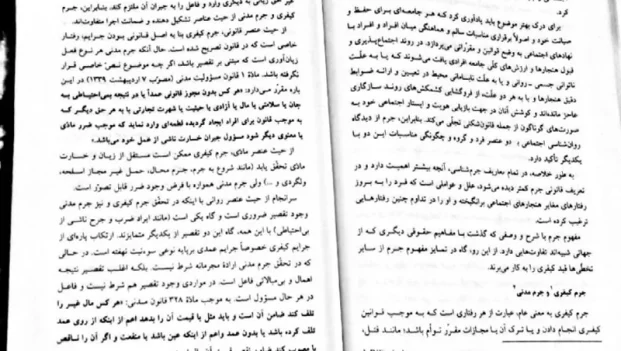 کرد.
برای درک بهتر موضوع باید یادآوری کرد که هر جامعه‌ای برای حفظ و
صیانت خود و اصولاً برقراری مناسبات سالم و هماهنگی میان افراد و افراد با
نهادهای اجتماعی به وضع قوانین و مقرراتی می‌پردازد. در روند اجتماع‌پذیری و
قبول هنجارها و ارزش‌های کلی جامعه افرادی یافت می‌شوند که یا به علت
ناتوانی جسمی ـ روانی و یا به علت نابسامانی محیط در تعیین و ارائه ضوابط
دقیق هنجارها و یا به هر دو علت، از فروگشایی کشمکش‌های روند سازگاری
عاجز مانده‌اند و کوشش آنان در جهت بازیابی هویت و ایستار اجتماعی خود به
صورت‌های گوناگون از جمله قانون‌شکنی تجلی می‌کند. بنابراین، جرم از دیدگاه
روان‌شناسی اجتماعی بر دو عنصر فرد و گروه و چگونگی مناسبات این دو با
یکدیگر تأکید دارد.
به طور خلاصه، در تمام تعاریف جرم‌شناسی، آنچه بیشتر اهمیت دارد و در
تعریف قانونی جرم کمتر دیده می‌شود، علل و عواملی است که فرد را به بروز
رفتارهای مغایر هنجارهای اجتماعی برانگیخته و او را در تداوم چنین رفتارهایی
ترغیب کرده است.
مفهوم جرم با شرح و وصفی که گذشت با مفاهیم حقوقی دیگری که از
جهاتی شبیه‌اند تفاوت‌هایی دارد. از این رو، گاه در تمایز مفهوم جرم از سایر
تخطی‌ها قید کیفری را به کار می‌برند.
جرم کیفری و جرم مدنی
جرم کیفری به معنی عام، عبارت از هر رفتاری است که به موجب قوانین
کیفری انجام دادن و یا ترک آن با مجازات مقرر توأم باشد؛ مانند قتل،
غیر حق زیانی به دیگری وارد و فاعل را به جبران آن ملتزم کند. بنابراین، جرم
کیفری و جرم مدنی از حیث عناصر تشکیل دهنده و ضمانت اجرا متفاوت‌اند.
از حیث عنصر قانونی، جرم کیفری بنا به اصل قانونی بودن جرایم، رفتار
خاصی است که در قانون تصریح شده است. حال آنکه جرم مدنی هر نوع فعل
زیان‌آوری است که مبتنی بر تقصیر باشد، اگر چه موضوع نص خاصی قرار
نگرفته باشد. مادۀ ۱ قانون مسؤولیت مدنی (مصوب ۷ اردیبهشت ۱۳۳۹) در این
باره مقرر می‌دارد: «هر کس بدون مجوز قانونی عمداً یا در نتیجه بی‌احتیاطی به
جان یا سلامتی یا مال یا آزادی یا حیثیت یا شهرت تجارتی یا به هر حق دیگری که
به موجب قانون برای افراد ایجاد گردیده لطمه‌ای وارد نماید که موجب ضرر مادی
یا معنوی دیگر شود مسؤول جبران خسارت ناشی از عمل خود می‌باشد.»
از حیث عنصر مادی، جرم کیفری ممکن است مستقل از زیان و خسارت
مادی تحقق یابد (مانند شروع به جرم، جرم محال، حمل غیر مجاز اسلحه،
ولگردی و ...) ولی جرم مدنی همواره با فرض وجود ضرر قابل تصور است.
سرانجام از حیث عنصر روانی با اینکه در تحقق جرم کیفری و نیز جرم مدنی
وجود تقصیر ضروری است و گاه یکی است (مانند ایراد ضرب و جرح ناشی از
بی‌احتیاطی) با این همه، گاه این دو تقصیر از یکدیگر متمایزند. ارتکاب پاره‌ای از
جرایم کیفری خصوصاً جرایم عمدی برپایه نوعی سوءنیت نهفته است. در حالی
که در تحقق جرم مدنی ارادۀ مجرمانه شرط نیست. بلکه اغلب تقصیر نتیجه
اهمال و بی‌مبالاتی فاعل است. در مواردی وجود تقصیر هم شرط نیست و فاعل
در هر حال مسؤول است. به موجب مادۀ ۳۲۸ قانون مدنی: «هر کس مال غیر را
تلف کند ضامن آن است و باید مثل یا قیمت آن را بدهد اعم از اینکه از روی عمد
تلف کرده باشد یا بدون عمد و اعم از اینکه عین باشد یا منفعت و اگر آن را ناقص
یا معیوب کند